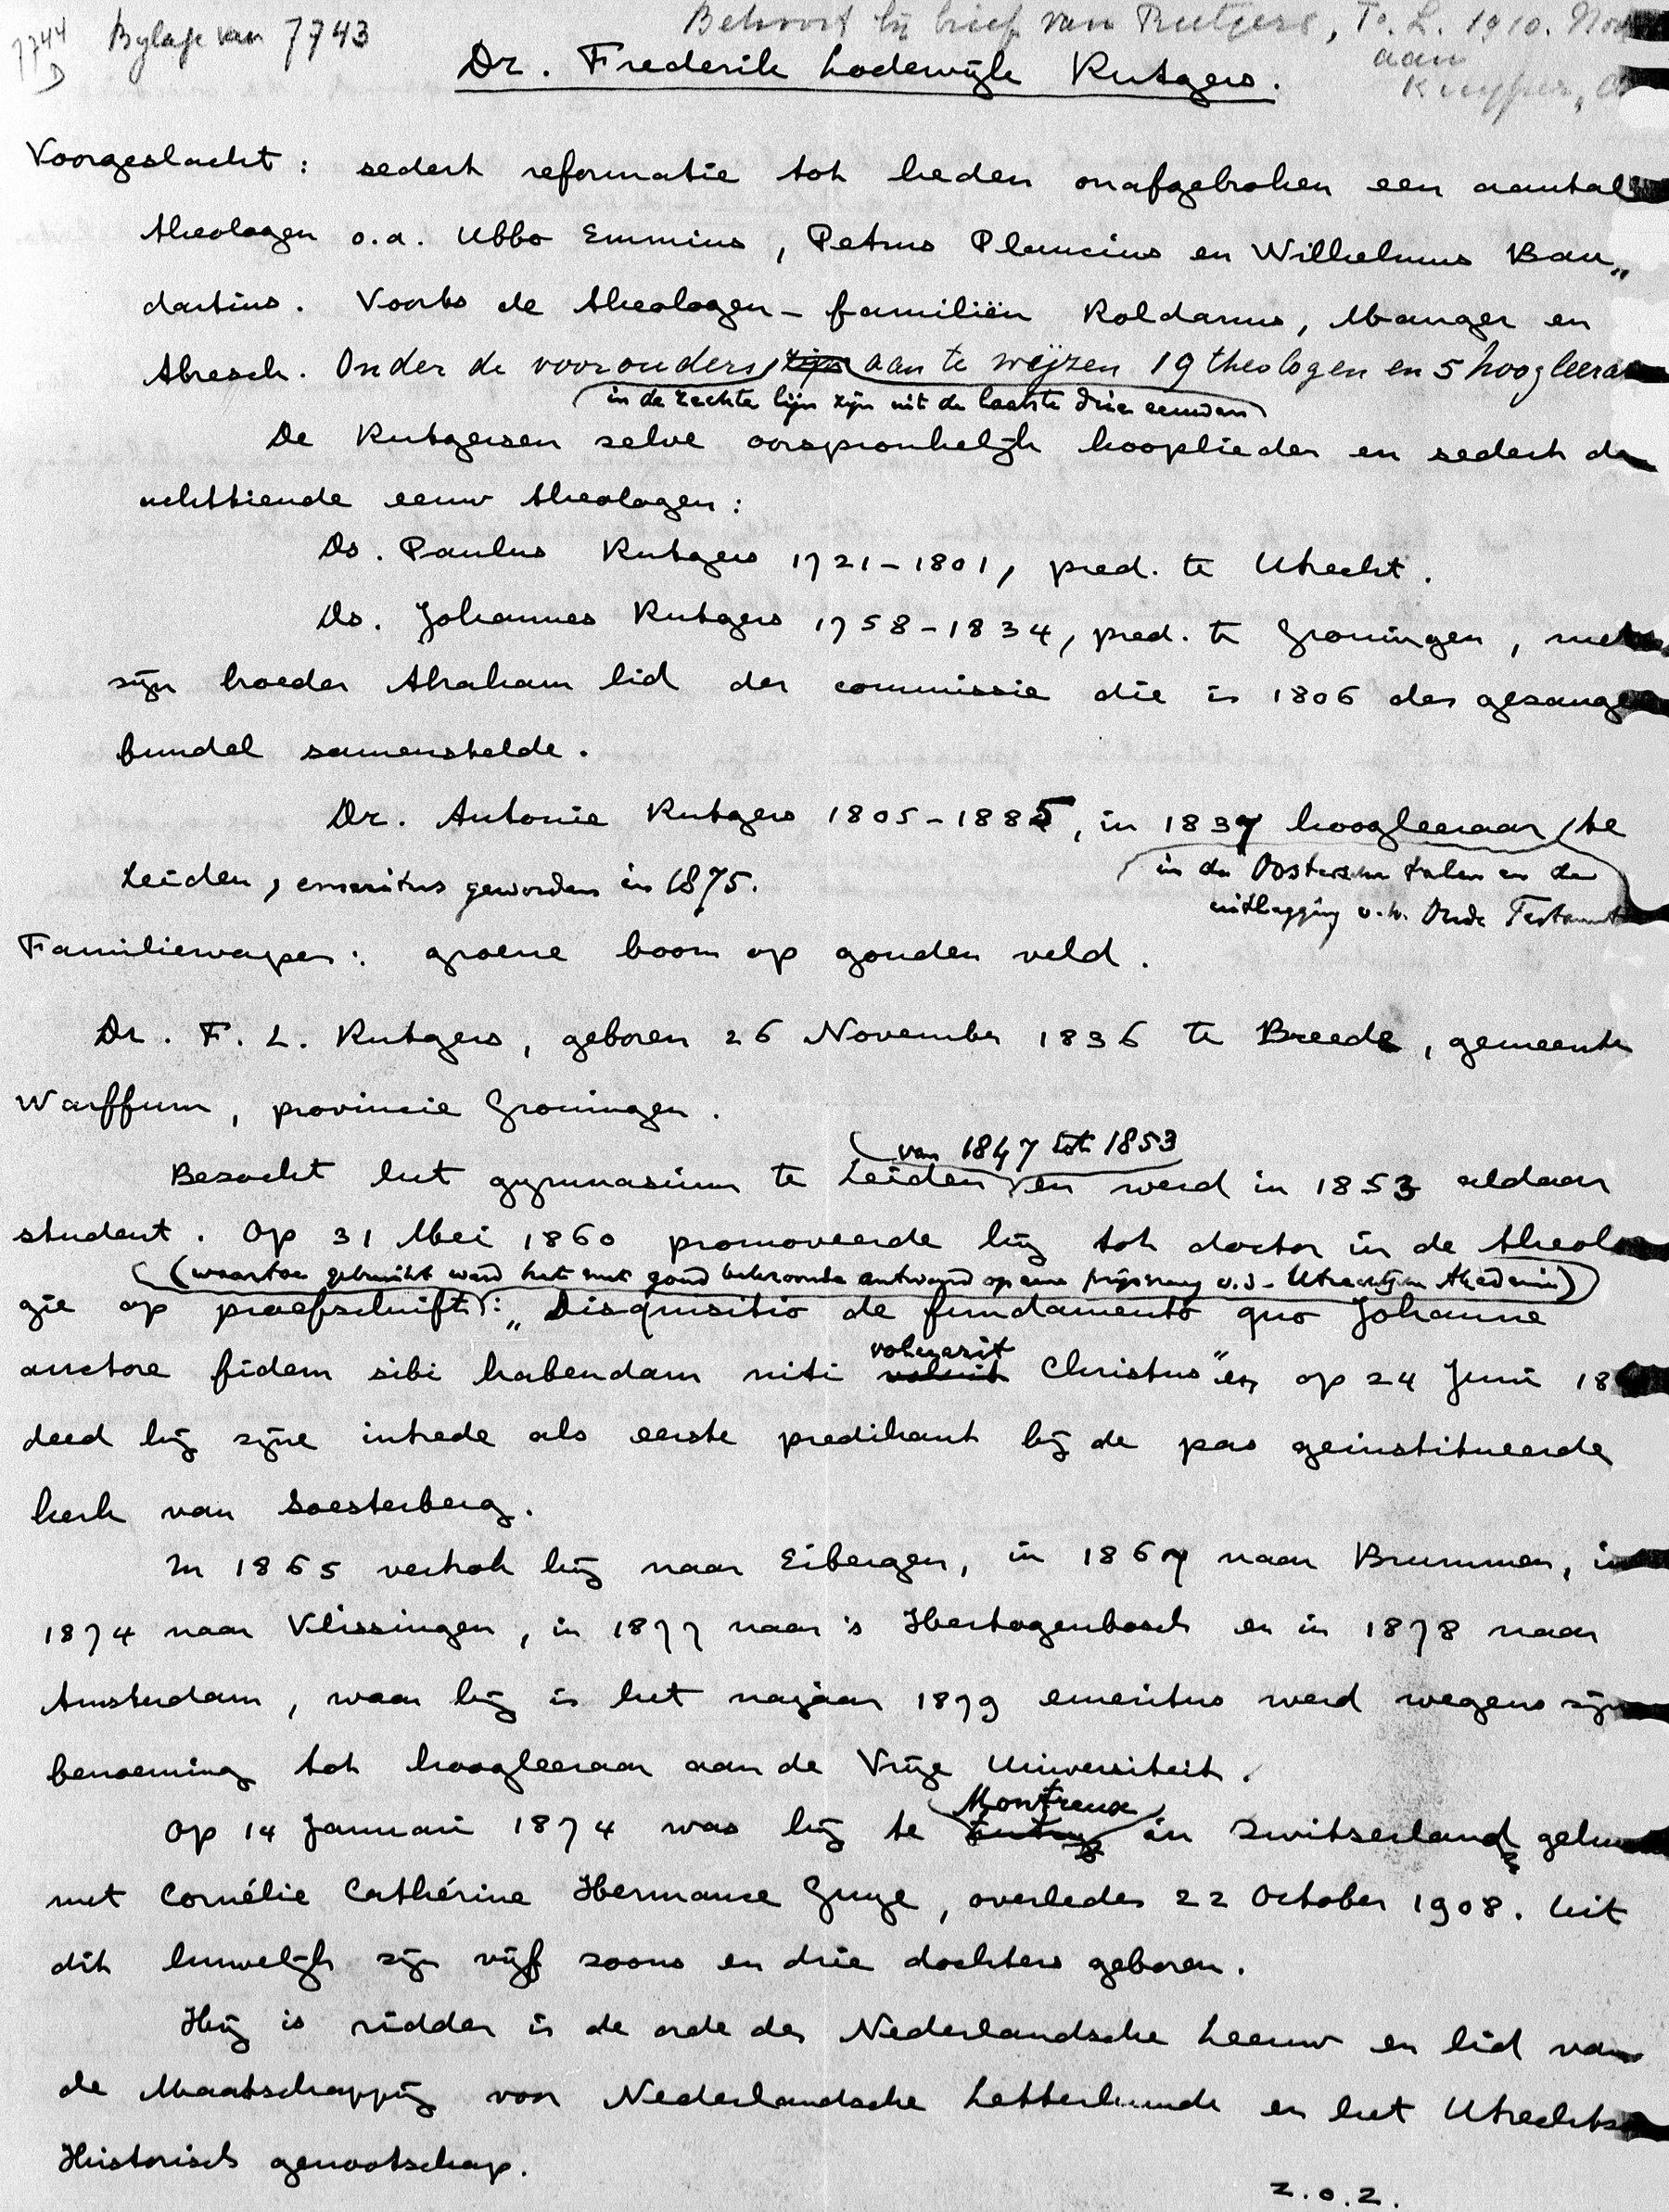 7744
D
Bylage van 7743
Behoort bij brief van Rutgers, Fr. L. 1910. Nov
aan
Kuyper, A
Dr. Frederik Lodewijk Rutgers.
Voorgeslacht: sedert reformatie tot heden onafgebroken een aantal
theologen o.a. Ubbo Emmius, Petrus Plancius en Wilhelmus Bau„
dartius. Voorts de theologen-familiën Roldanus, Manger en
Abresch. Onder de voorouders zijn aan te wijzen 19 theologen en 5 hoogleera
in de rechte lijn zijn uit de laatste drie eeuwen
De Rutgersen zelve oorspronkelijk kooplieden en sedert de
achttiende eeuw theologen:
Ds. Paulus Rutgers 1721-1801, pred. te Utrecht.
Ds. Johannes Rutgers 1758-1834, pred. te Groningen, met
zijn broeder Abraham lid der commissie die in 1806 den gezange
bundel samenstelde.
Dr. Antonie Rutgers 1805-1885, in 1837 hoogleeraar te
in de Oostersche talen en de
Leiden, emeritus geworden in 1875.
uitlegging v.h. Oude Testament
Familiewapen: groene boom op gouden veld.
Dr. F. L. Rutgers, geboren 26 November 1836 te Breede, gemeente
Warffum, provincie Groningen.
van 1847 tot 1853
Bezocht het gymnasium te Leiden en werd in 1853 aldaar
student. Op 31 Mei 1860 promoveerde hij tot doctor in de theolo
(waartoe gebruikt werd het met goud bekroonde antwoord op eene prijsvraag v.d. Utrechtsche Akademie)
gie op proefschrift: „Disquisitio de fundamento quo Johanne
auctore fidem sibi habendam niti voluerit voluit Christus" en op 24 Juni 18
deed hij zijne intrede als eerste predikant bij de pas geïnstitueerde
kerk van Soesterberg.
In 1865 vertrok hij naar Eibergen, in 1867 naar Brummen, in
1874 naar Vlissingen, in 1877 naar 's Hertogenbosch en in 1878 naar
Amsterdam, waar hij in het najaar 1879 emeritus werd wegens zijn
benoeming tot hoogleeraar aan de Vrije Universiteit.
Montreux
Op 14 Januari 1874 was hij te in Zwitserland gehu
met Cornélie Cathérine Hermance Guye, overleden 22 October 1908. Uit
dit huwelijk zijn vijf zoons en drie dochters geboren.
Hij is ridder in de orde den Nederlandsche Leeuw en lid van
de Maatschappij voor Nederlandsche Letterkunde en het Utrechtsch
Historisch genootschap.
z.o.z.